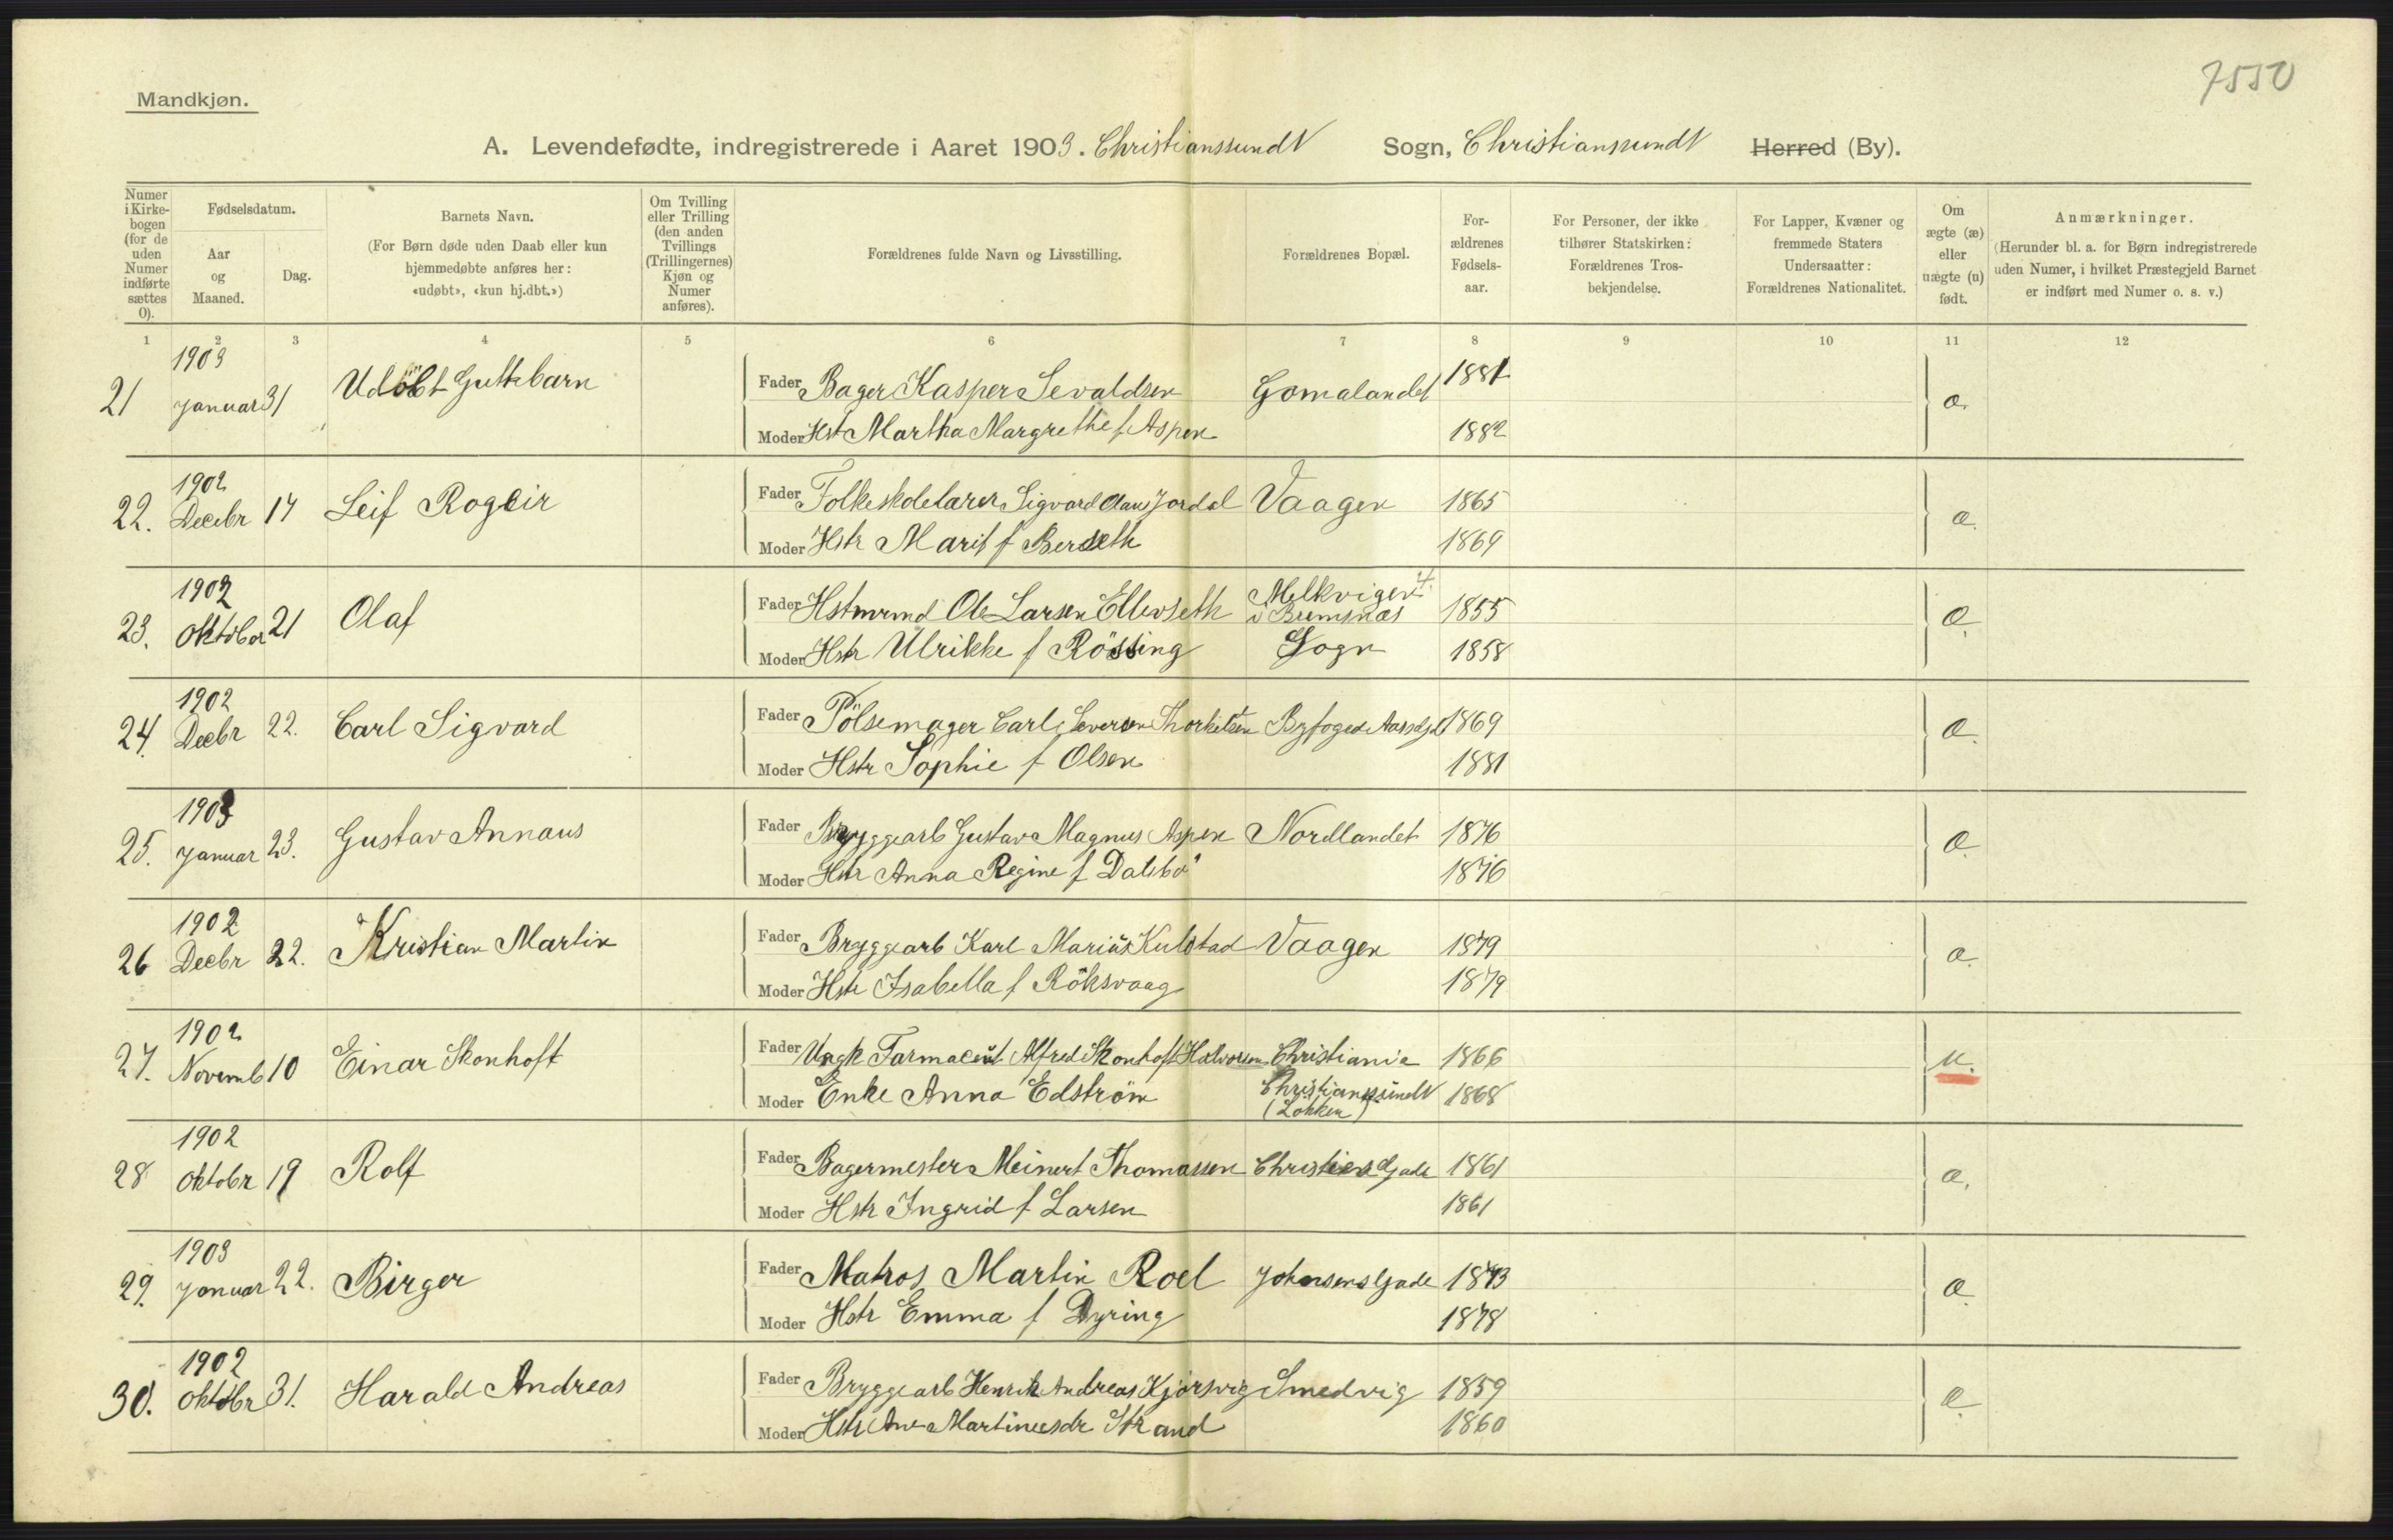 7550
Mandkjøn.
A. Levendefødte, indregistrerede i Aaret 1903. Christianssund N Sogn, Christianssund N Herred (By).
Numer i Kirkebogen (for de uden Numer indførte sættes 0).
Fødselsdatum.
Aar og Maaned.
Dag.
Barnets Navn.
(For Børn døde uden Daab eller kun hjemmedøbte anføres her: «udøbt», «kun hj.dbt.»)
Om Tvilling eller Trilling (den anden Tvillings (Trillingernes) Kjøn og Numer anføres).
Forældrenes fulde Navn og Livsstilling.
Forældrenes Bopæl.
For-ældrenes Fødsels-aar.
For Personer, der ikke tilhører Statskirken: Forældrenes Tros-bekjendelse.
For Lapper, Kvæner og fremmede Staters Undersaatter: Forældrenes Nationalitet.
Om ægte (æ) eller uægte (u) født.
Anmærkninger.
(Herunder bl. a. for Børn indregistrerede uden Numer, i hvilket Præstegjeld Barnet er indført med Numer o. s. v.)
1 2 3 4 5 6 7 8 9 10 11 12
21 1903 Januar 31 Udöbt Guttebarn Fader Bager Kasper Sevaldsen Gomalandet 1881 æ.
Moder Hst Martha Margrethe f Aspen 1882
22. 1902 Decebr 17 Leif Rogeir Fader Folkeskolelærer Sigvard Claus Jordal Vaagen 1865 æ.
Moder Hstr Marit f Berseth 1869
23. 1902 Oktober 21 Olaf Fader Hstmrmd Ole Larsen Ellevseth Melkvigen i Bremsnæs 1855 æ.
Moder Hstr Ulrikke f Rössing Sogn 1858
24. 1902 Decbr 22. Carl Sigvard Fader Pölsemager Carl Severin Thorkelsen Byfoged 1869 æ.
Moder Hstr Sophie f Olsen 1881
25. 1903 Januar 23. Gustav Annaus Fader Bryggearb Gustav Magnus Aspen Nordlandet 1876 æ.
Moder Hstr Anna Regine f Dalebö 1876
26 1902 Decbr 22. Kristian Martin Fader Bryggearb Karl Marius Kulstad Vaagen 1879 æ.
Moder Hstr Isabella f Röksvaag 1879
27. 1902 Novemb 10 Einar Skonhoft Fader Ungk Farmaceut Alfred Skonhoft Halvorsen Christiania 1866 u.
Moder Enke Anna Edström Christianssund N (Lokken) 1868
28 1902 Oktobr 19 Rolf Fader Bagermester Meinert Thomassen Christies Gade 1861 æ.
Moder Hstr Ingrid f Larsen 1861
29. 1903 Januar 22. Birger Fader Matros Martin Roel Johnsens Gade 1873 æ.
Moder Hstr Emma f Dyring 1878
30. 1902 Oktobr 31. Harald Andreas Fader Bryggearb Henrik Andreas Kjörsvig Smedvig 1859 æ.
Moder Hstr Ane Martineesdr Strand 1860